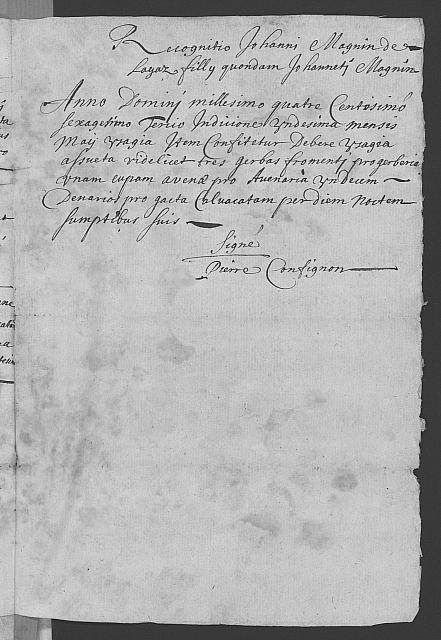 Recognitio Johanni Magnin de
Layaz filly quondam Johannetj Magnin
Anno Dominj millesimo quatre Centesimo
sexagesimo Tercio Indicione Vndesima mensis
Maij Vsagia Item Confitetur Debere Vsagia
assueta videlicet tres gerbas fromentj pro gerberia
vnam cupam avenæ pro Avenaria Vndecim
Denarios pro gaeta Calvacatam per diem Noctem
sumptibus suis
Signé
Pierre Consignon
ta
us
et
ne
a